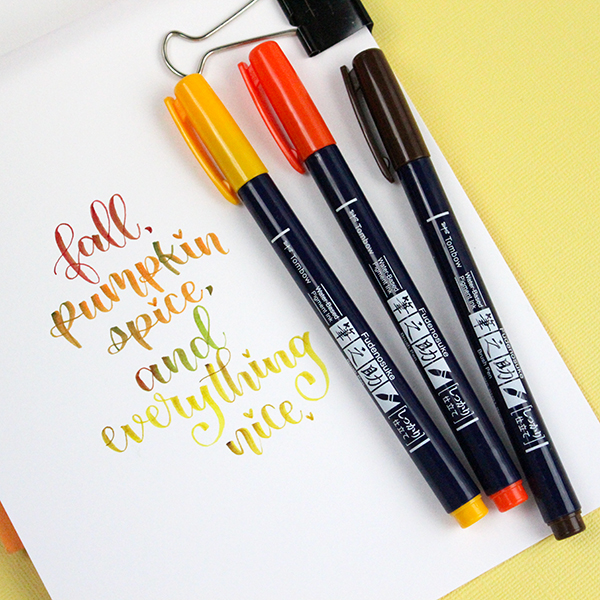 fall,
pumpkin
spice,
and
everything
nice.
Tombow
Water-Based
Pigment Ink
Fudenosuke
筆之助
しっかり
Tombow
Water-Based
Pigment Ink
Fudenosuke
筆之助
しっかり
Tombow
Water-Based
Pigment Ink
筆之助
Brush Pen
しっかり